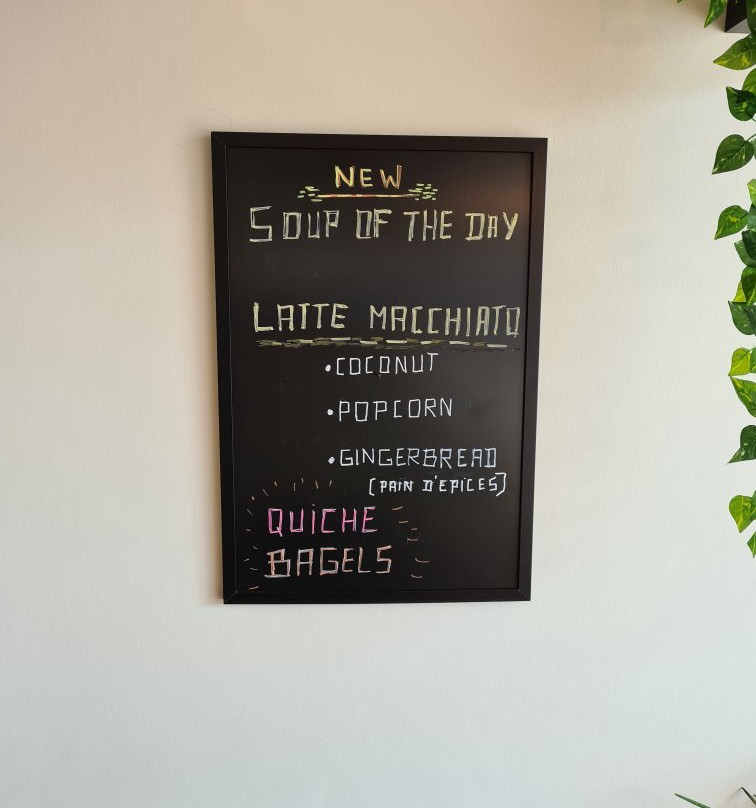 NEW
SOUP OF THE DAY
LATTE MACCHIATO
•COCONUT
•POPCORN
•GINGERBREAD
(PAIN D'EPICES)
QUiCHE
BAGELS